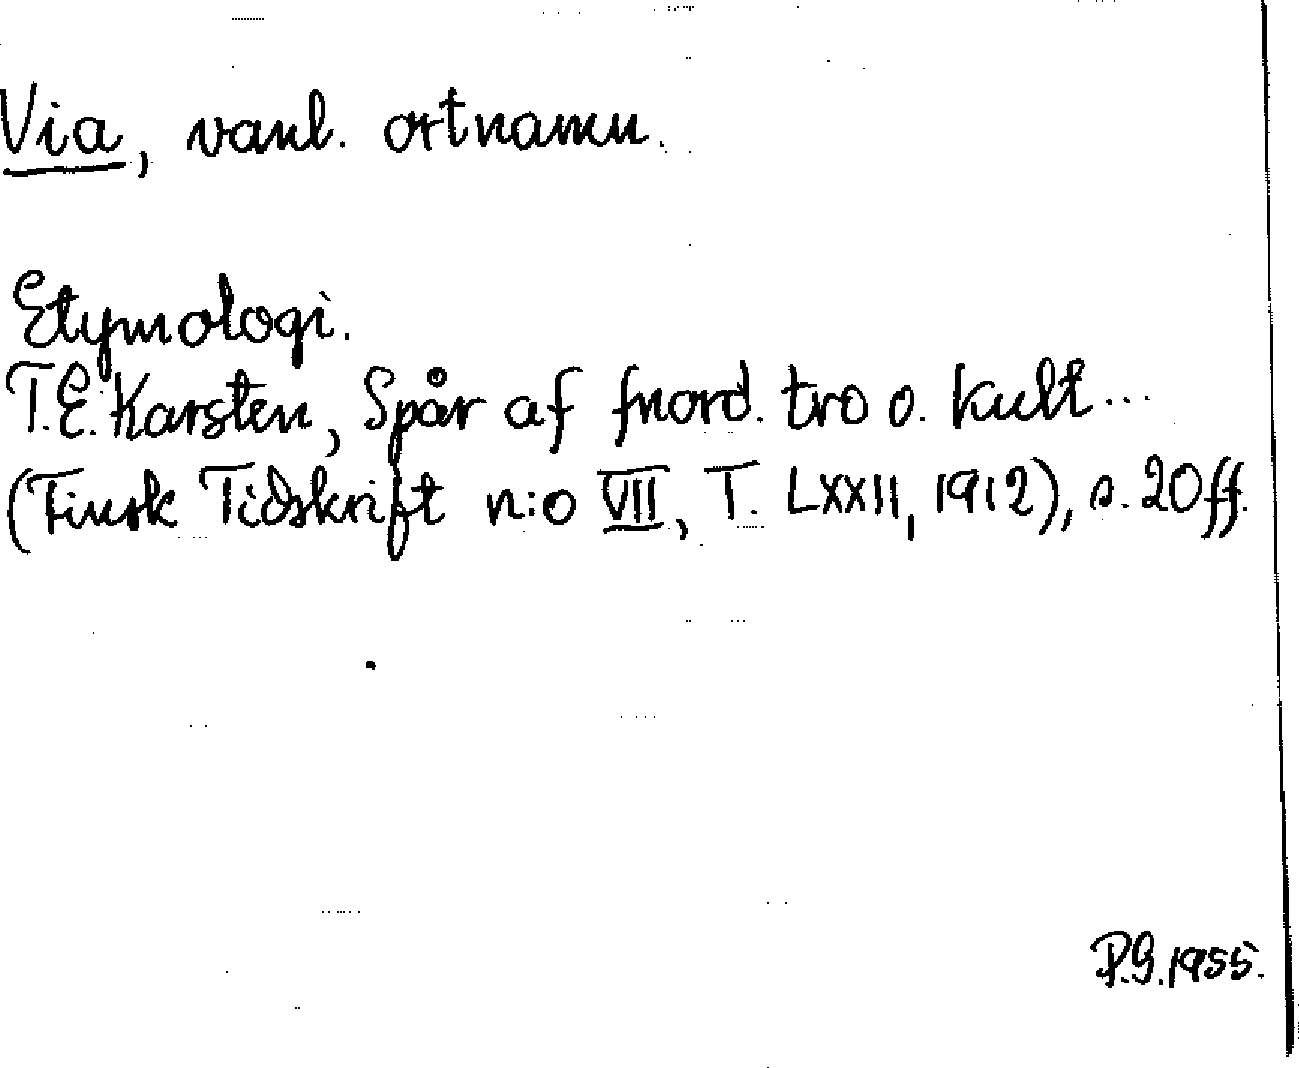 Via, vanl. ortnamn.
Etymologi.
T.E. Karsten, Spår af fnord. tro o. kult...
(Finsk Tidskrift n:o VII, T. LXXII, 1912), s. 20ff.
P.G. 1955.